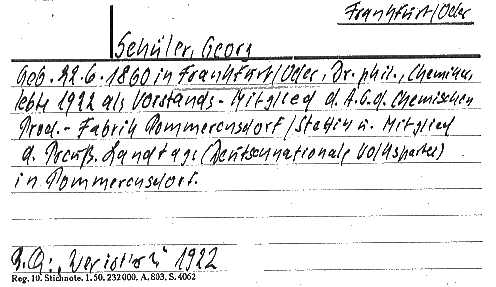 Frankfurt/Oder
Schüler, Georg
Geb. 22.6.1860 in Frankfurt/Oder, Dr. phil., Chemiker,
lebte 1922 als Vorstands-Mitglied d. A.G.d. Chemischen
Prod.-Fabrik Pommerensdorf/Stettin u. Mitglied
d. Preuß. Landtags (Deutschnationale Volkspartei)
in Pommerensdorf.
B.Q.: „Wer ist's" 1922
Reg. 10. Stichnote. 1. 50. 232000. A. 803, S. 4062